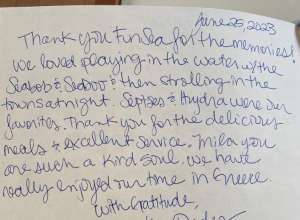 June 25, 2023
Thank you Fun Sea for the memories!
we loved playing in the water w/the
Seabob & Seadoo & then strolling in the
towns at night. Septses & Hydra were our
favorites. Thank you for the delicious
meals & excellent service. Mila you
are such a kind soul. We have
really enjoyed our time in Greece.
With Gratitude,